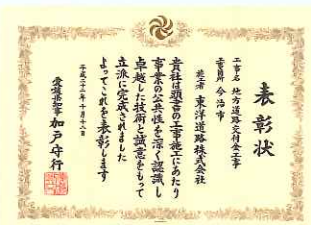 表彰状
工事名 地方道路交付金工事
工事箇所 今治市
施工者 東洋道路株式会社
貴社は頭書の工事施工にあたり
事業の公共性を深く認識し
卓越した技術と誠意をもって
立派に完成されました
よってこれを表彰します
平成二十一年十月十六日
愛媛県知事 加戸守行